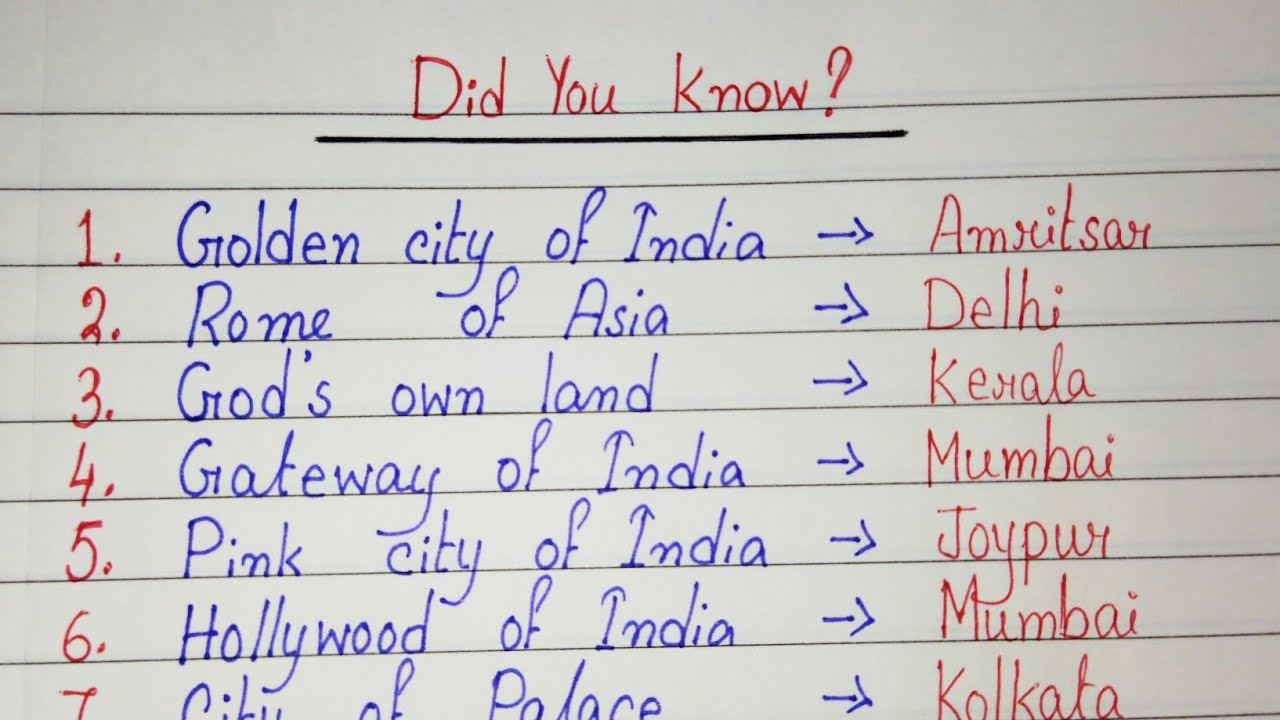 Did You Know?
1. Golden city of India → Amritsar
2. Rome of Asia → Delhi
3. God's own land → Kerala
4. Gateway of India → Mumbai
5. Pink city of India → Joypur
6. Hollywood of India → Mumbai
7. City of Palace → Kolkata